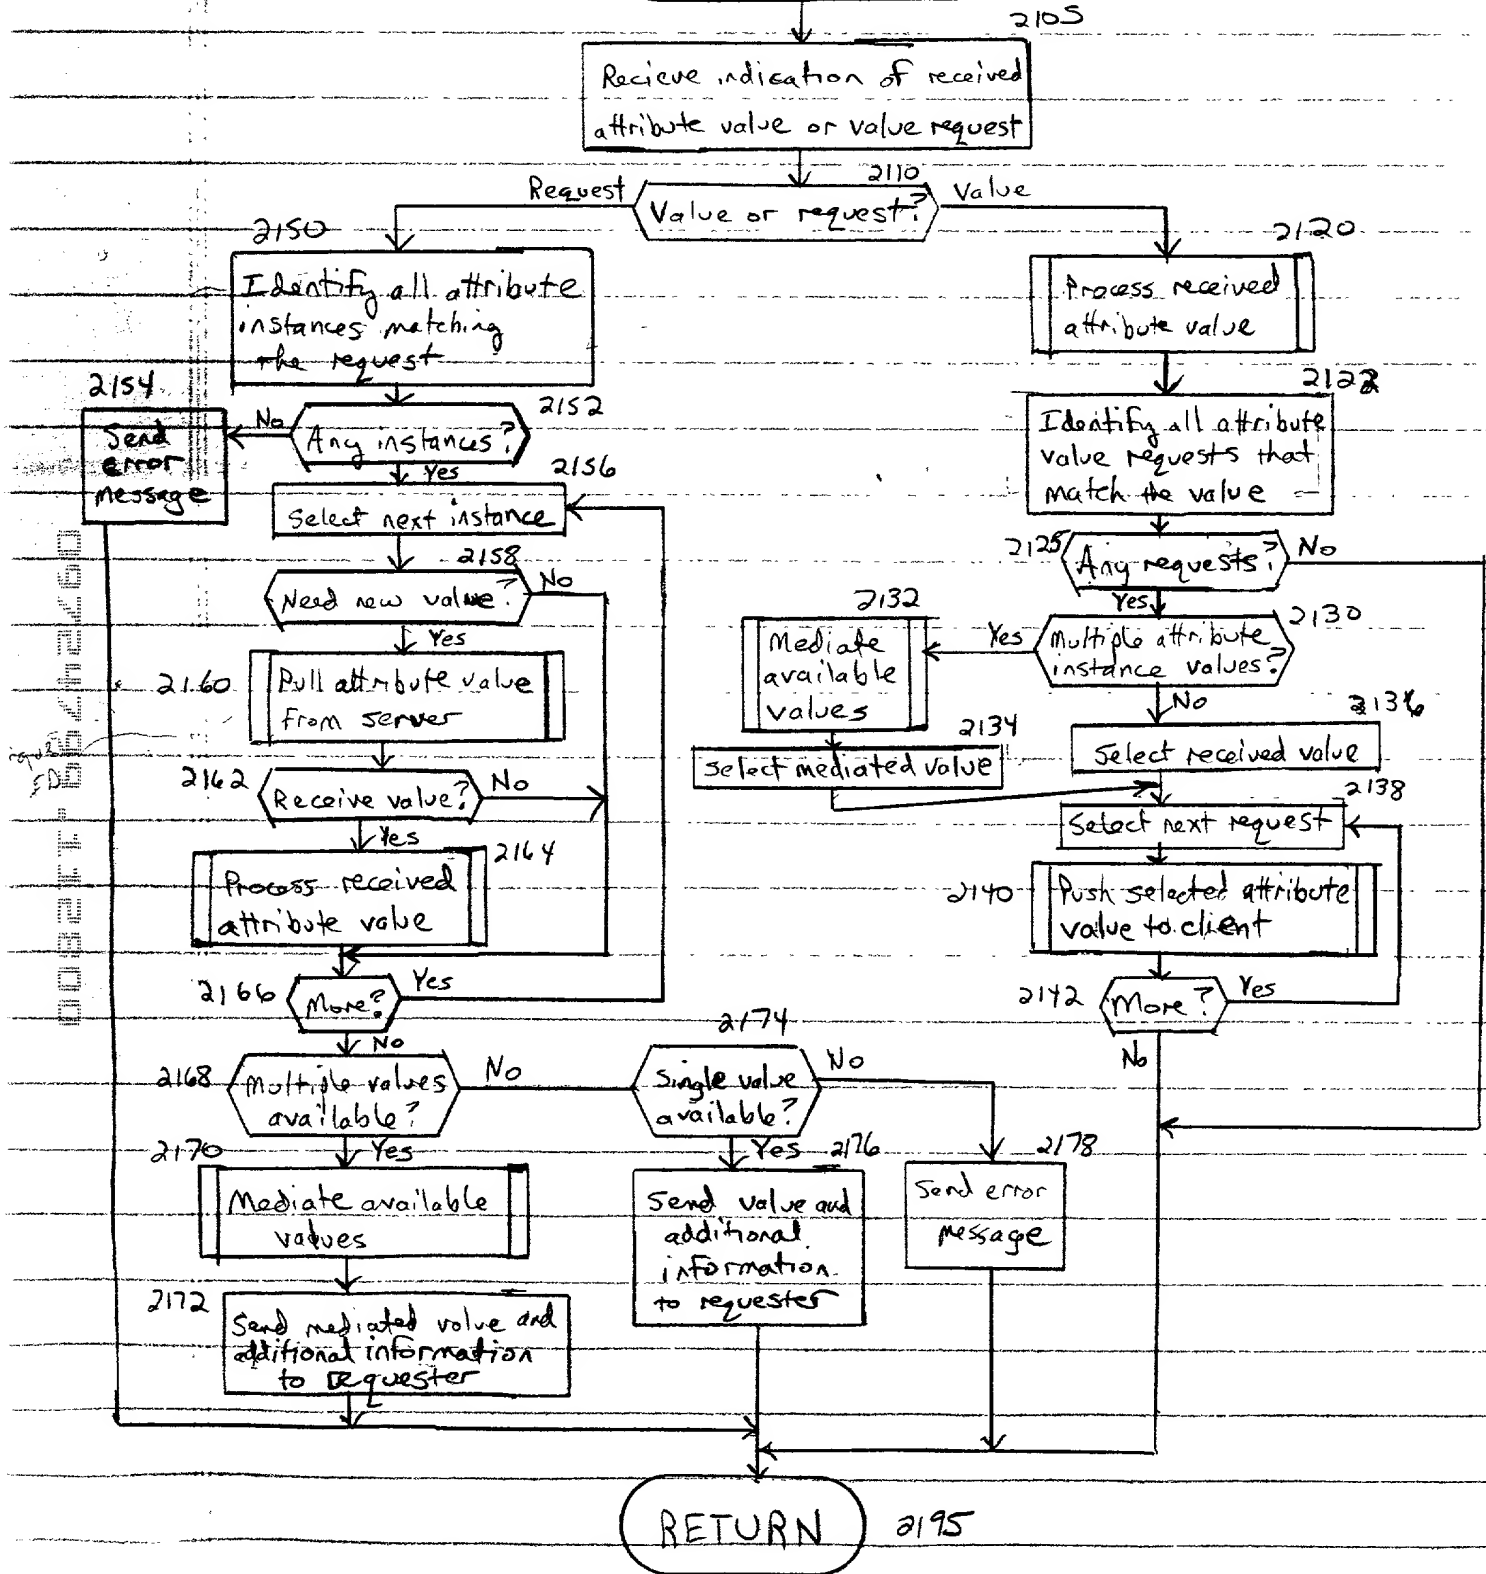 2105
Recieve indication of received
attribute value or value request
2110
Request
Value or request?
Value
2150
Identify all attribute
instances matching
the request
2120
Process received
attribute value
2154
Send
error
message
No
2152
Any instances?
Yes
2156
Select next instance
2158
Need new value?
No
Yes
2160
Pull attribute value
from server
2162
Receive value?
No
Yes
2164
Process received
attribute value
2166
More?
Yes
No
2168
Multiple values
available?
No
Yes
2170
Mediate available
values
2172
Send mediated value and
additional information
to requester
2174
Single value
available?
No
Yes
2176
Send value and
additional
information
to requester
2178
Send error
message
2122
Identify all attribute
value requests that
match the value
2125
Any requests?
No
Yes
2130
Multiple attribute
instance values?
Yes
No
2132
Mediate
available
values
2134
Select mediated value
2136
Select received value
2138
Select next request
2140
Push selected attribute
value to client
2142
More?
Yes
No
RETURN
2195